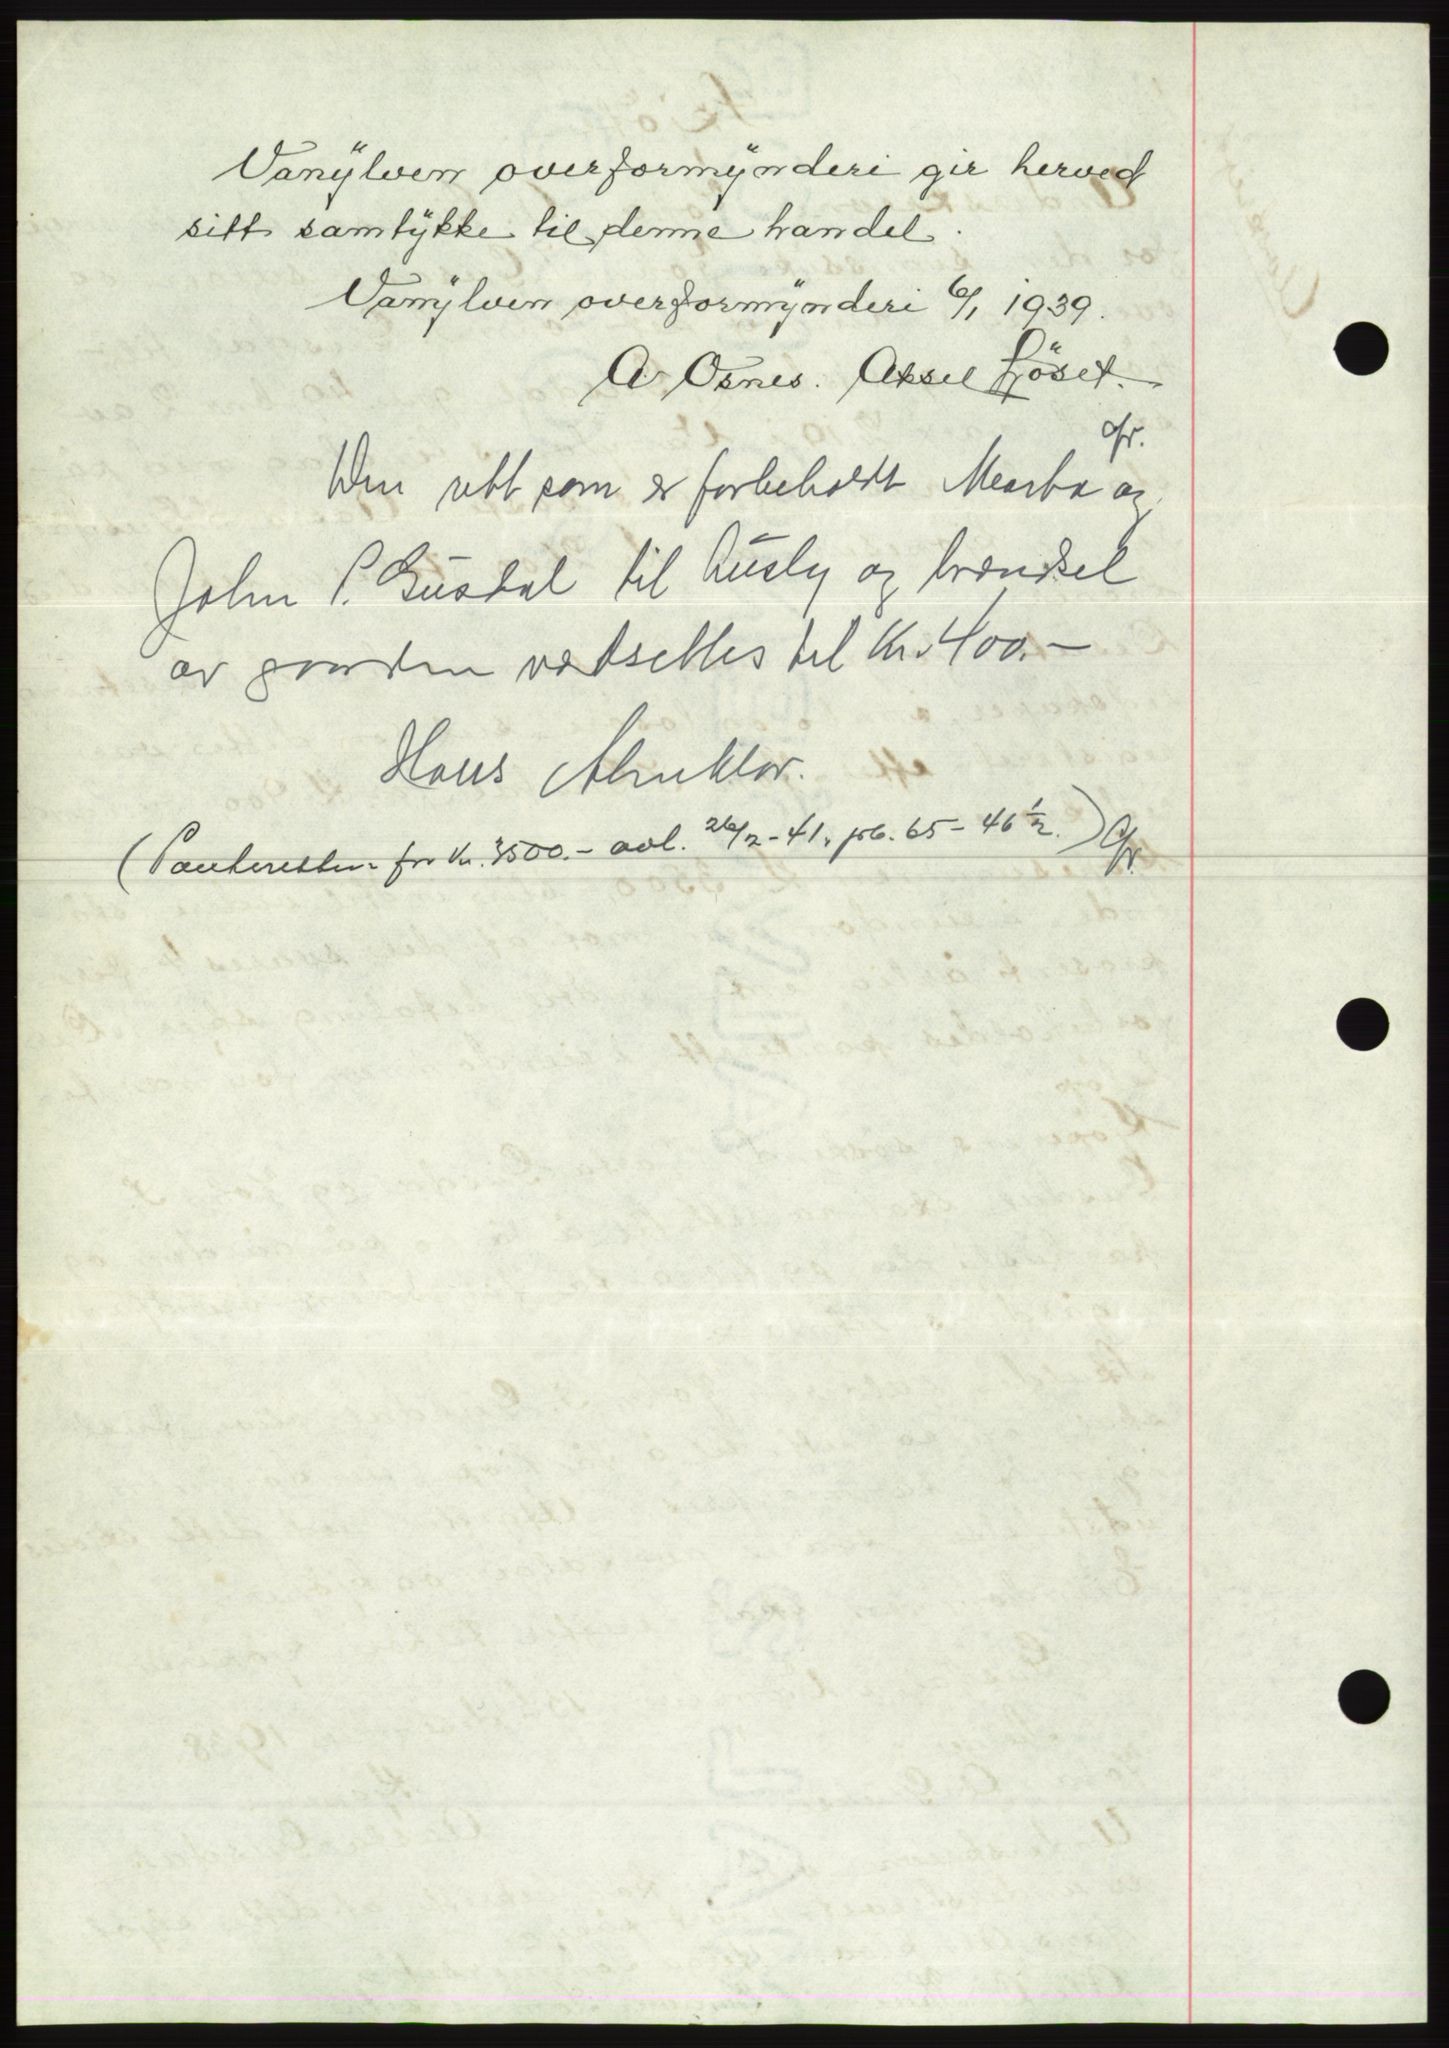 Vanylven overformynderi gir herved
sitt samtykke til denne handel.
Vanylven overformynderi 6/1 1939.
A Osnes. Aksel Fjöset.
ofr.
Den rett som er forbeholdt Marta og
John P. Gusdal til husly og brendsel
av gaarden verdsettes til Kr. 400.-
Hans
(Panteretten for Kr. 3500.- avl. 26/2-41, pb. 65-46½.)